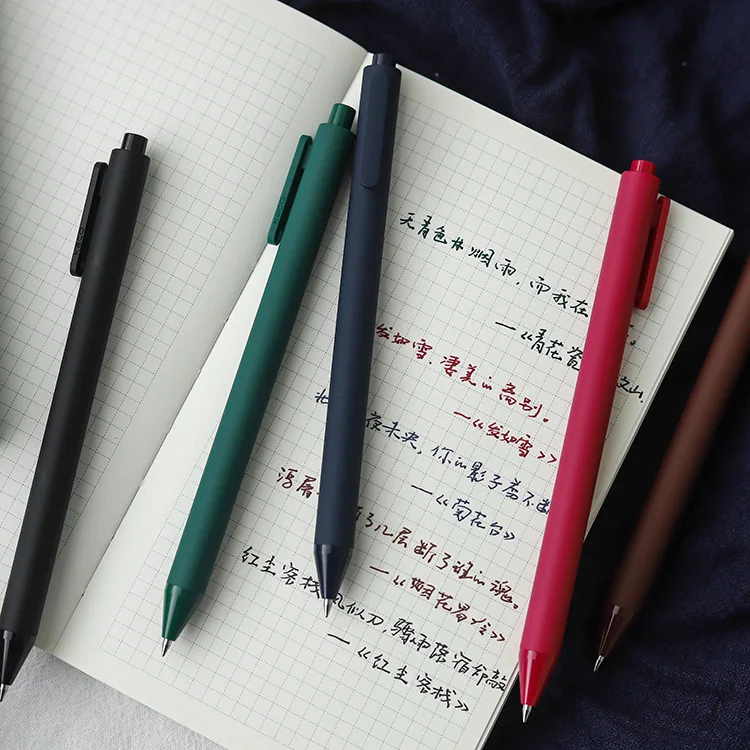 天青色等烟雨,而我在 。
—《青花瓷 文山.
发如雪,凄美的离别。
—《发如雪》
北 夜未央,你的影子剪不断
—《菊花台》
浮屠 断了几层断了谁的魂。
—《烟花易冷》
红尘客栈风似刀,骤雨落宿命敲
—《红尘客栈》